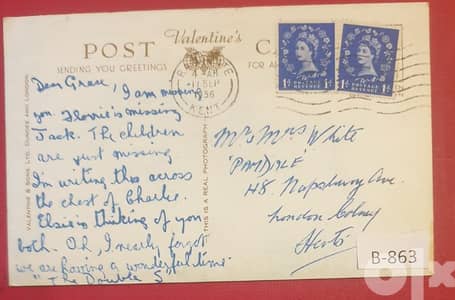 POST Valentine's
SENDING YOU GREETINGS
4 AM
SEP
KENT
POSTAGE REVENUE
1D 1D
POSTAGE REVENUE
1D 1D
Dear Grace, I am missing
you. Florrie is missing
Jack. The children
are just missing
I'm writing this across
the chest of Charlie.
Elsie is thinking of you
both. Oh, I nearly forgot
we are having a wonderful time
"The Double S"
VALENTINE & SONS, LTD. DUNDEE AND LONDON.
THIS IS A REAL PHOTOGRAPH
Mr & Mrs White
48 Napsbury Ave.
London Colney
Herts
B-863
olx